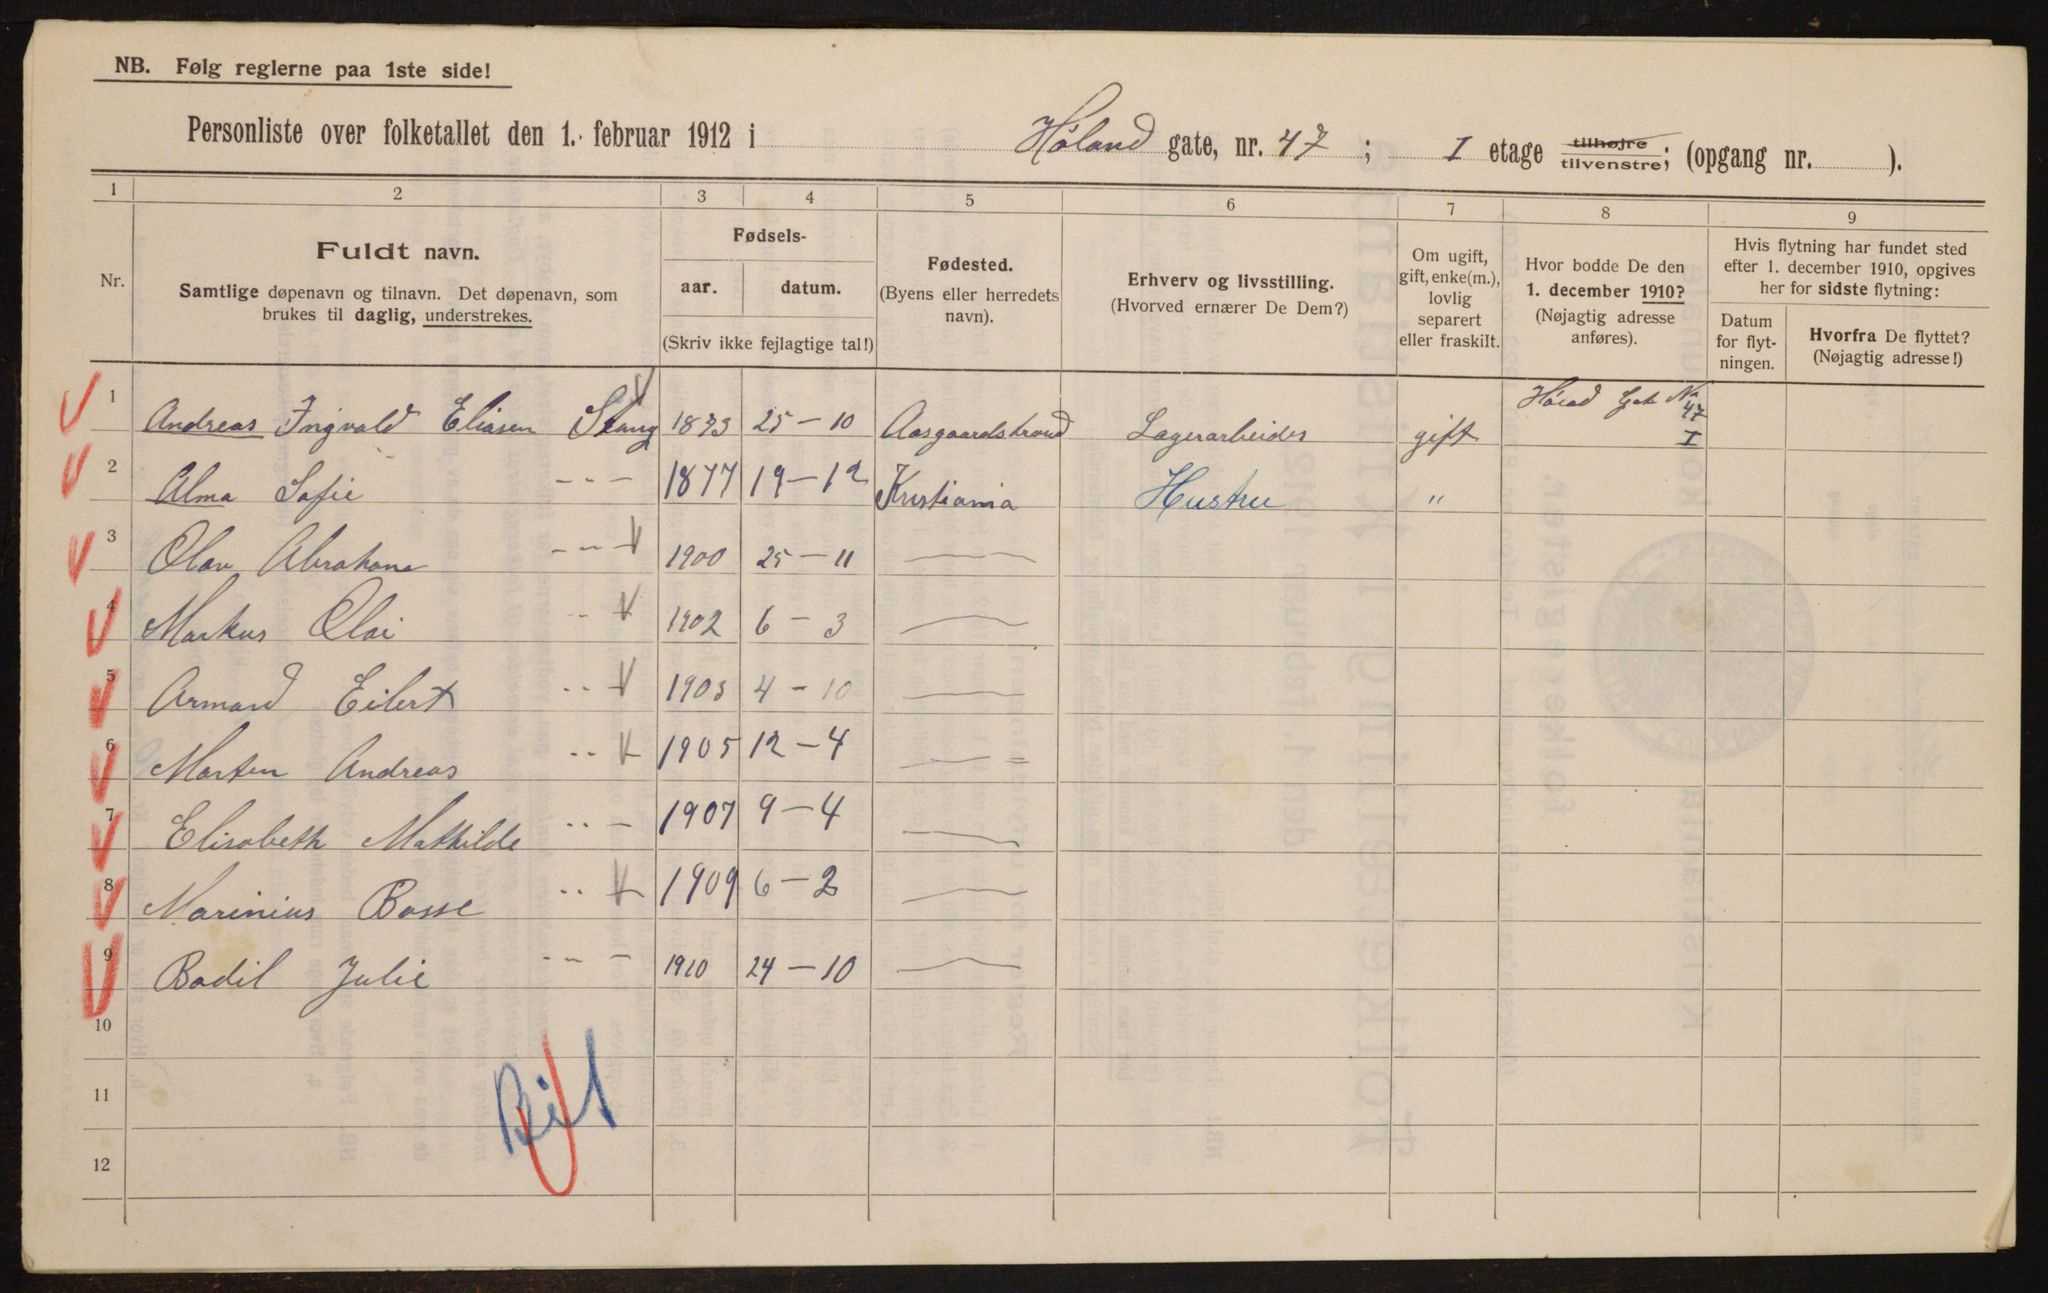 NB. Følg reglerne paa 1ste side!
Personliste over folketallet den 1. februar 1912 i Høland gate, nr. 47 ; I etage tilhøjre tilvenstre; (opgang nr. ).
1 2 3 4 5 6 7 8 9
Nr.
Fuldt navn.
Samtlige døpenavn og tilnavn. Det døpenavn, som
brukes til daglig, understrekes.
Fødsels-
aar. datum.
(Skriv ikke fejlagtige tal!)
Fødested.
(Byens eller herredets
navn).
Erhverv og livsstilling.
(Hvorved ernærer De Dem?)
Om ugift,
gift, enke(m.),
lovlig
separert
eller fraskilt.
Hvor bodde De den
1. december 1910?
(Nøjagtig adresse
anføres).
Hvis flytning har fundet sted
efter 1. december 1910, opgives
her for sidste flytning:
Datum
for flyt-
ningen.
Hvorfra De flyttet?
(Nøjagtig adresse!)
1 Andreas Ingvald Eliasen Stang 1873 25-10 Aasgaardstrand Lagerarbeider gift No 47 I
2 Alma Sofie -"- 1877 19-12 Kristiania Hustru "
3 Olav Abraham -"- 1900 25-11 —
4 Markus Olai " 1902 6-3 —
5 Armand Eilert " 1903 4-10 —
6 Morten Andreas " 1905 12-4 —
7 Elisabeth Mathilde " - 1907 9-4 —
8 Marinius Basse " 1909 6-2 —
9 Bodil Julie -"- 1910 24-10 —
10
11
12